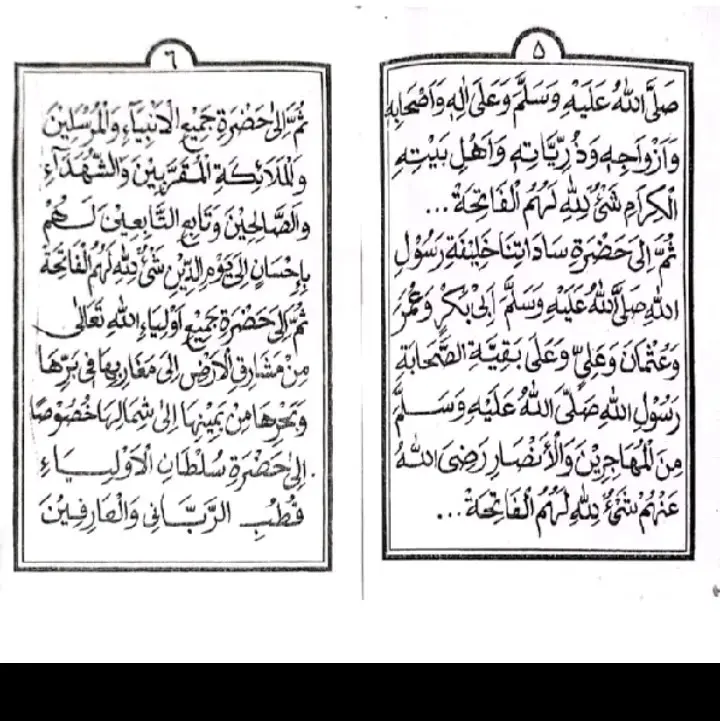 ٥
صَلَّى اللهُ عَلَيْهِ وَسَلَّمَ وَعَلَى اٰلِهِ وَاَصْحَابِهِ
وَاَزْوَاجِهِ وَذُرِّيَّاتِهِ وَاَهْلِ بَيْتِهِ
الْكِرَامِ شَيْءٌ لِلّٰهِ لَهُمُ الْفَاتِحَةْ ...
ثُمَّ اِلَى حَضْرَةِ سَادَاتِنَا خَلِيْفَةِ رَسُوْلِ
اللهِ صَلَّى اللهُ عَلَيْهِ وَسَلَّمَ اَبِى بَكْرٍ وَعُمَرَ
وَعُثْمَانَ وَعَلِيٍّ وَعَلَى بَقِيَّةِ الصَّحَابَةِ
رَسُوْلِ اللهِ صَلَّى اللهُ عَلَيْهِ وَسَلَّمَ
مِنَ الْمُهَاجِرِيْنَ وَالْأَنْصَارِ رَضِىَ اللهُ
عَنْهُمْ شَيْءٌ لِلّٰهِ لَهُمُ الْفَاتِحَةْ ...
٦
ثُمَّ اِلَى حَضْرَةِ جَمِيْعِ الْاَنْبِيَآءِ وَالْمُرْسَلِيْنَ
وَالْمَلَائِكَةِ الْمُقَرَّبِيْنَ وَالشُّهَدَآءِ
وَالصَّالِحِيْنَ وَتَابِعِ التَّابِعِيْنَ لَهُمْ
بِاِحْسَانٍ اِلَى يَوْمِ الدِّيْنِ شَيْءٌ لِلّٰهِ لَهُمُ الْفَاتِحَةْ
ثُمَّ اِلَى حَضْرَةِ جَمِيْعِ اَوْلِيَاءِ اللهِ تَعَالَى
مِنْ مَشَارِقِ الْاَرْضِ اِلَى مَغَارِبِهَا فِى بَرِّهَا
وَبَحْرِهَا مِنْ يَمِيْنِهَا اِلَى شِمَالِهَا خُصُوْصًا
اِلَى حَضْرَةِ سُلْطَانِ الْاَوْلِيَاءِ
قُطْبِ الرَّبَّانِى وَالْعَارِفِيْنَ